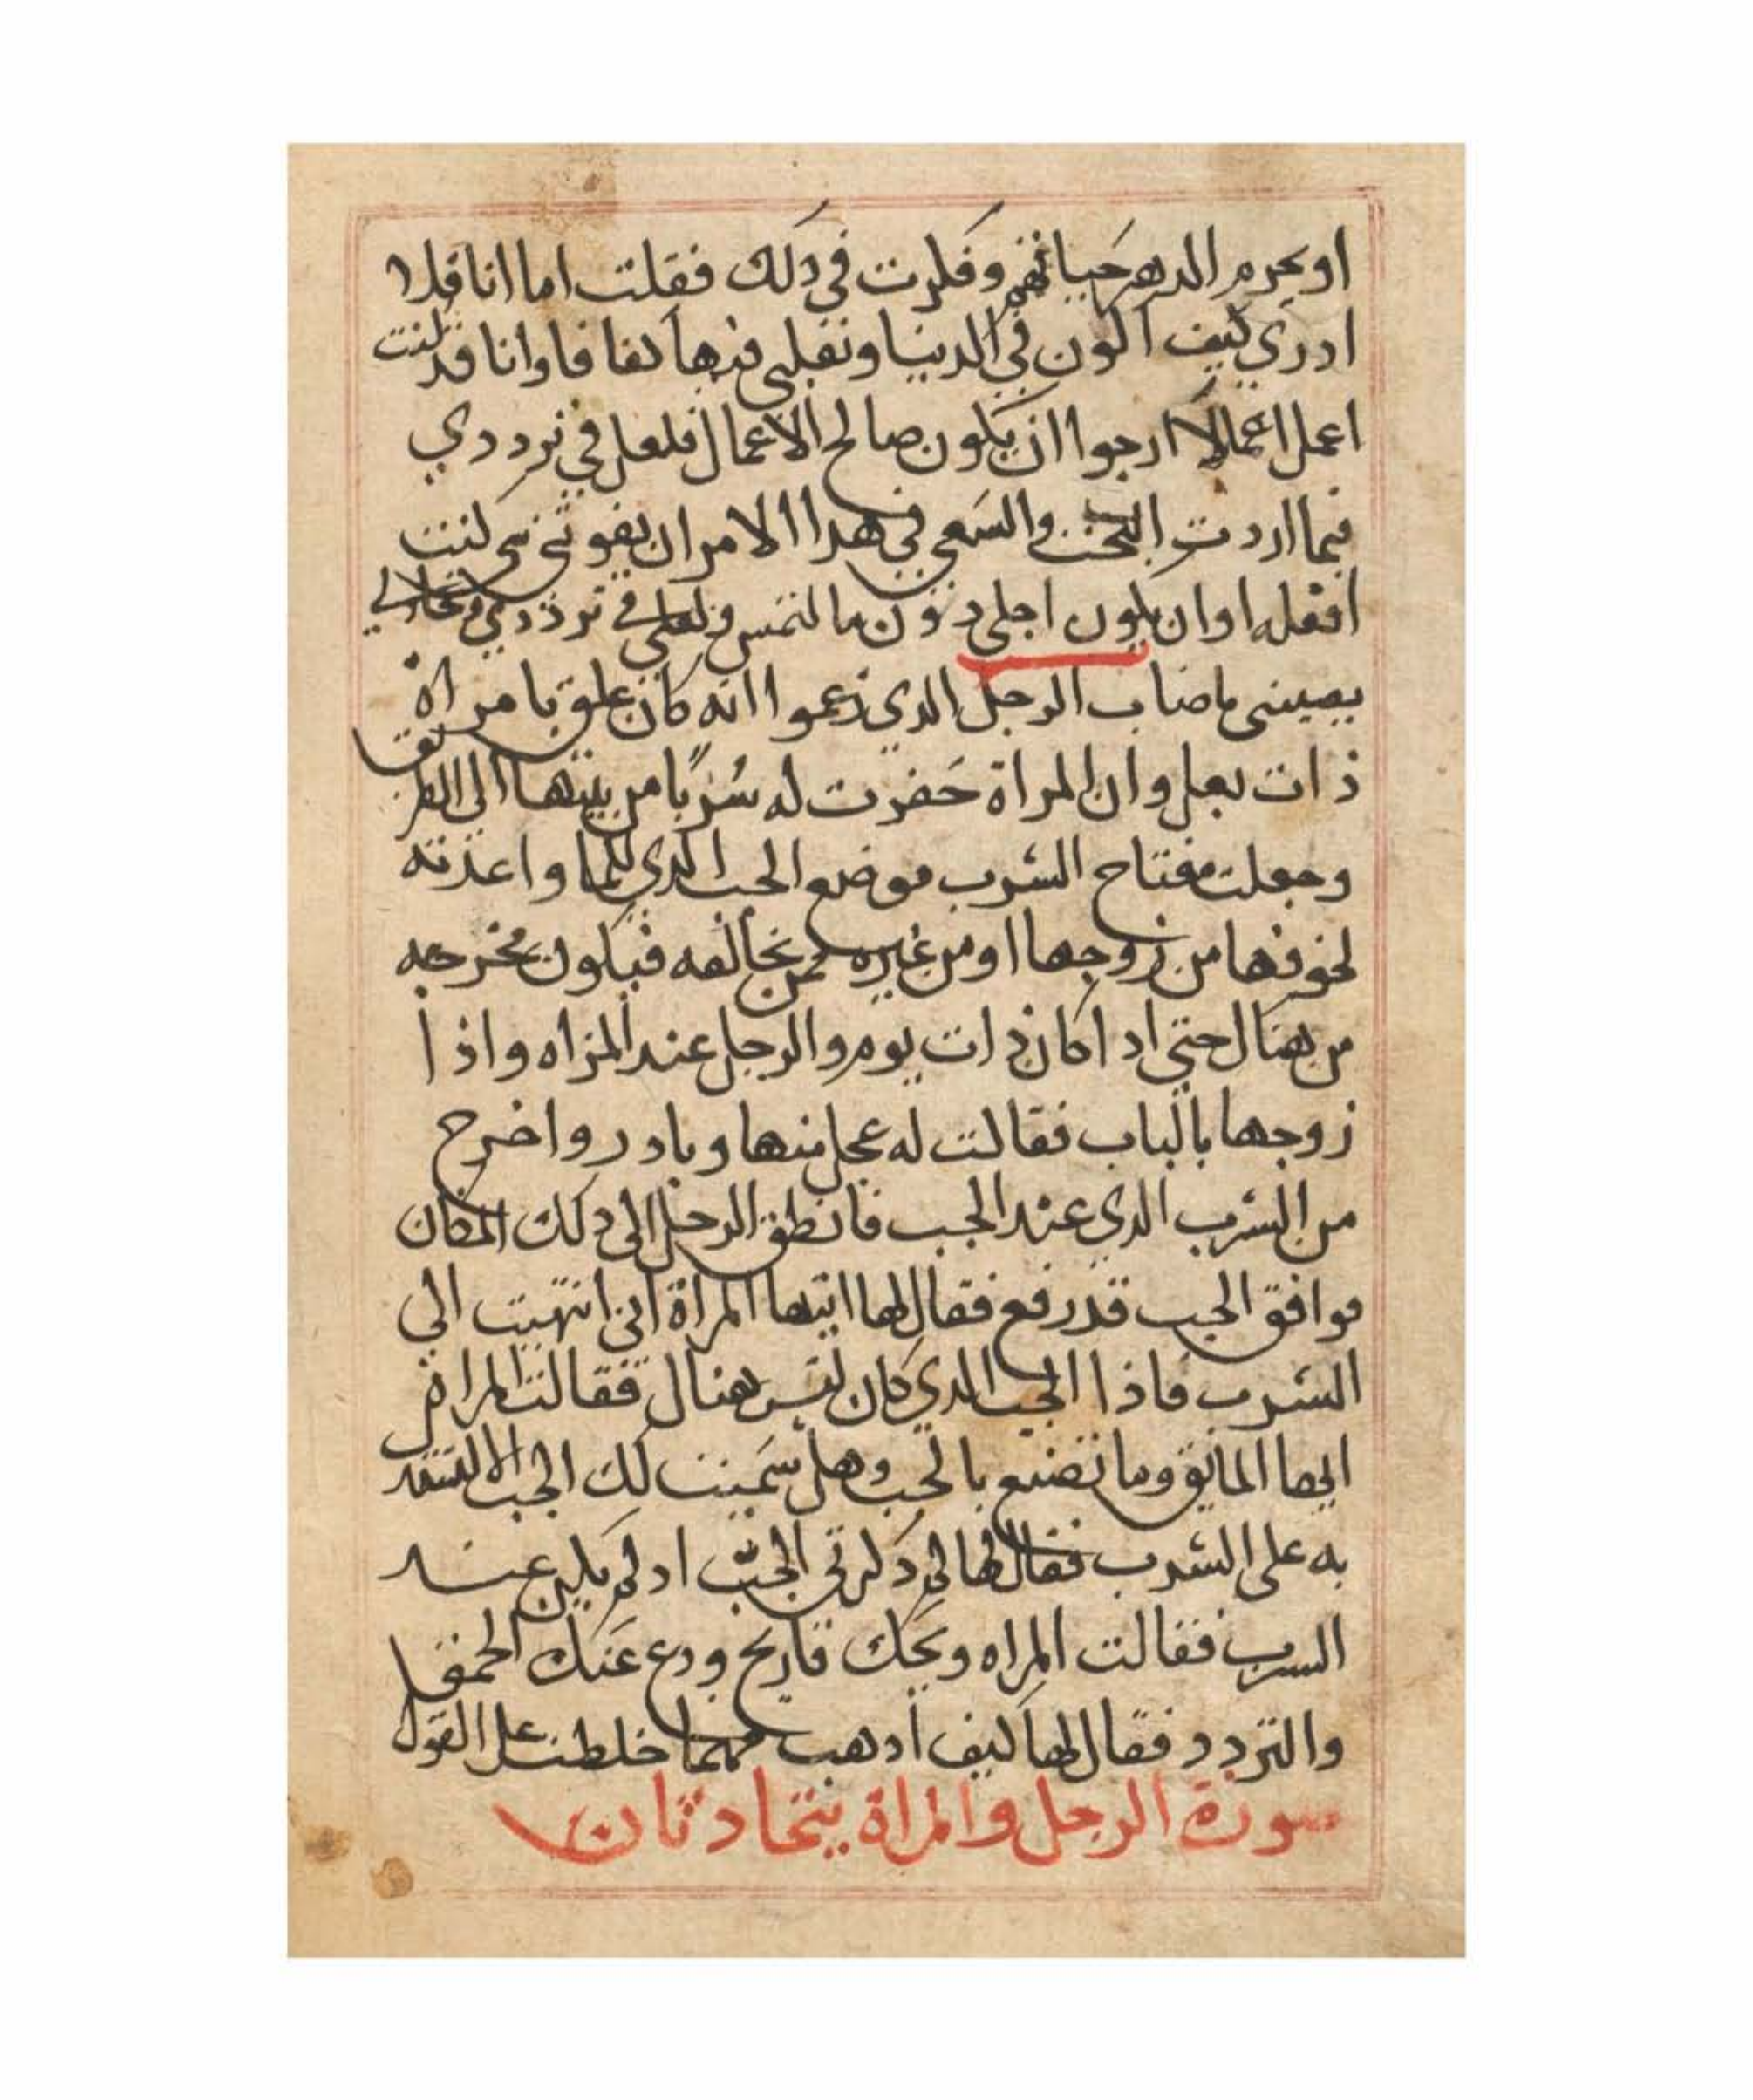 او يحرم الدهر حياتهم وفكرت في دلك فقلت اما انا فلا
ادري كيف اكون في الدنيا وتقلبي فيها كفافا وانا قد كنت
اعمل اعمالا ارجوا ان يكون صالح الاعمال فلعل في ترددي
فيما اردت البحث والسعي في هدا الامر ان يفوتني شي كنت
افعله او ان يكون اجلي دون ما التمس ولعلي في ترددي
يصيبني ما صاب الرجل الدي زعموا انه كان علق بامراة
ذات بعل وان المراة حفرت له سربا من بيتها الى الطريق
وجعلت مفتاح السرب موضع الجب الدي للما واعدته
لخوفها من زوجها او من غيره ممن يخالفه فيكون مخرجه
من هناك حتى ادا كان ذات يوم والرجل عند المراه واذا
زوجها بالباب فقالت له عجل منها وبادر واخرج
من الشرب الدي عند الجب فانطق الرجل الى دلك المكان
فوافق الجب قد رفع فقال لها ايتها المراة اني انتهيت الي
السرب فاذا الجب الدي كان ليس هناك فقالت المراة
ايها المايق وما تصنع بالجب وهل سميت لك الجب الا لتستدل
به على السرب فقال لها لم دكرتي الجب اد لم يكن عند
السرب فقالت المراه ويحك فاريح ودع عنك الحمق
والتردد فقال لها كيف ادهب مهما خلطت على القول
سورة الرجل والمراة يتحادثان